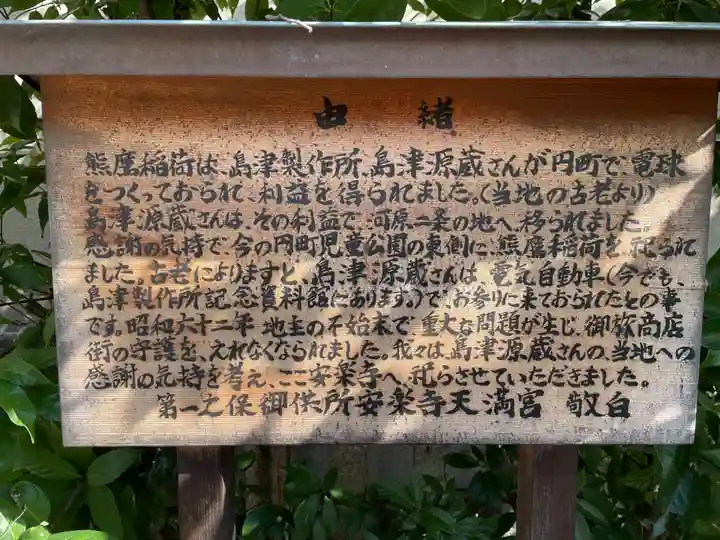 由緒
熊鷹稲荷は、島津製作所、島津源蔵さんが円町で、電球
をつくっておられ、利益を得られてました。(当地の古老より)
島津源蔵さんは、その利益で、河原二条の地へ、移られました。
感謝の気持で、今の円町児童公園の東側に、熊鷹稲荷を、祀られて
ました。古老によりますと、島津源蔵さんは、電気自動車(今でも、
島津製作所記念資料館にあります。)で、お参りに来ておられたとの事
です。昭和六十二年 地主の不始末で、重大な問題が生じ、御旅商店
街の守護を、えれなくなられました。我々は、島津源蔵さんの、当地への
感謝の気持を考え、ここ安楽寺へ、祀らさせていただきました。
第一之保御供所安楽寺天満宮 敬白